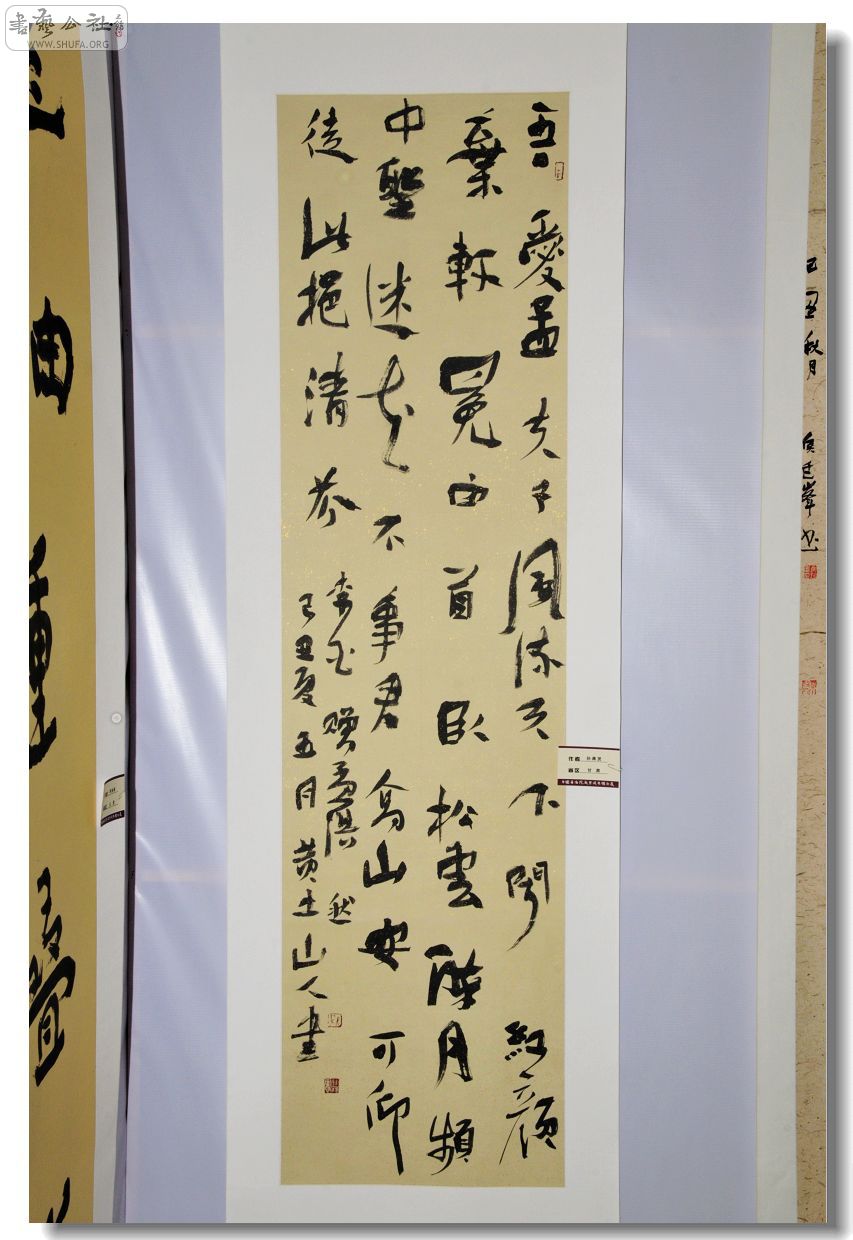 書藝公社
WWW.SHUFA.ORG
吾愛孟夫子風流天下聞紅顏
棄軒冕白首臥松雲醉月頻
中聖迷花不事君高山安可仰
徒此挹清芬
李白贈孟浩然
己丑夏五月黄土山人書
己丑秋月
作者
省区 甘肃
曲重